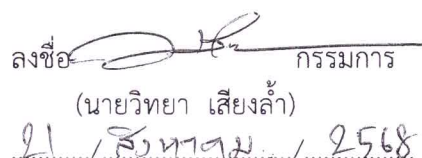 ลงชื่อ กรรมการ
(นายวิทยา เสียงล้ำ)
21 / สิงหาคม / 2568